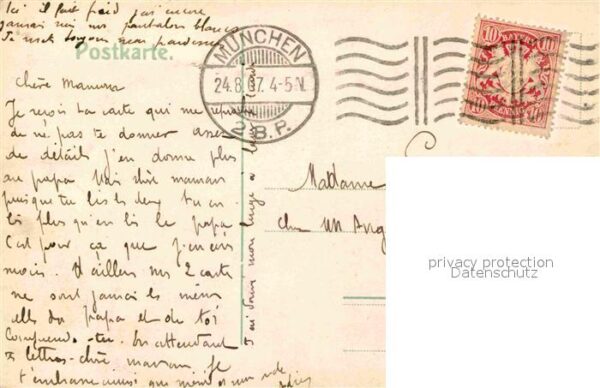 Ici il fait froid j'ai encore
jamais mis mes pantalon blancs
Je mets toujours mon pardessus
Postkarte.
MÜNCHEN
24.8.07. 4-5 N.
2 B.P.
10 BAYERN 10
10 PFENNIG 10
Chère Maman
Je reçois ta carte qui me
de ne pas te donner assez
de détails j'en donne plus
au papa Mais chère maman
puisque tu lis les deux tu en
lis plus qu'en lis le papa
C'est pour ça que j'en écris
moins. D'ailleurs mes 2 carte
ne sont jamais les même
celle du papa et de toi
Comprends-tu. En attendant
ta lettre chère maman, je
t'embrasse ainsi que
J'ai donné mon linge à
Madame
chez
privacy protection
Datenschutz